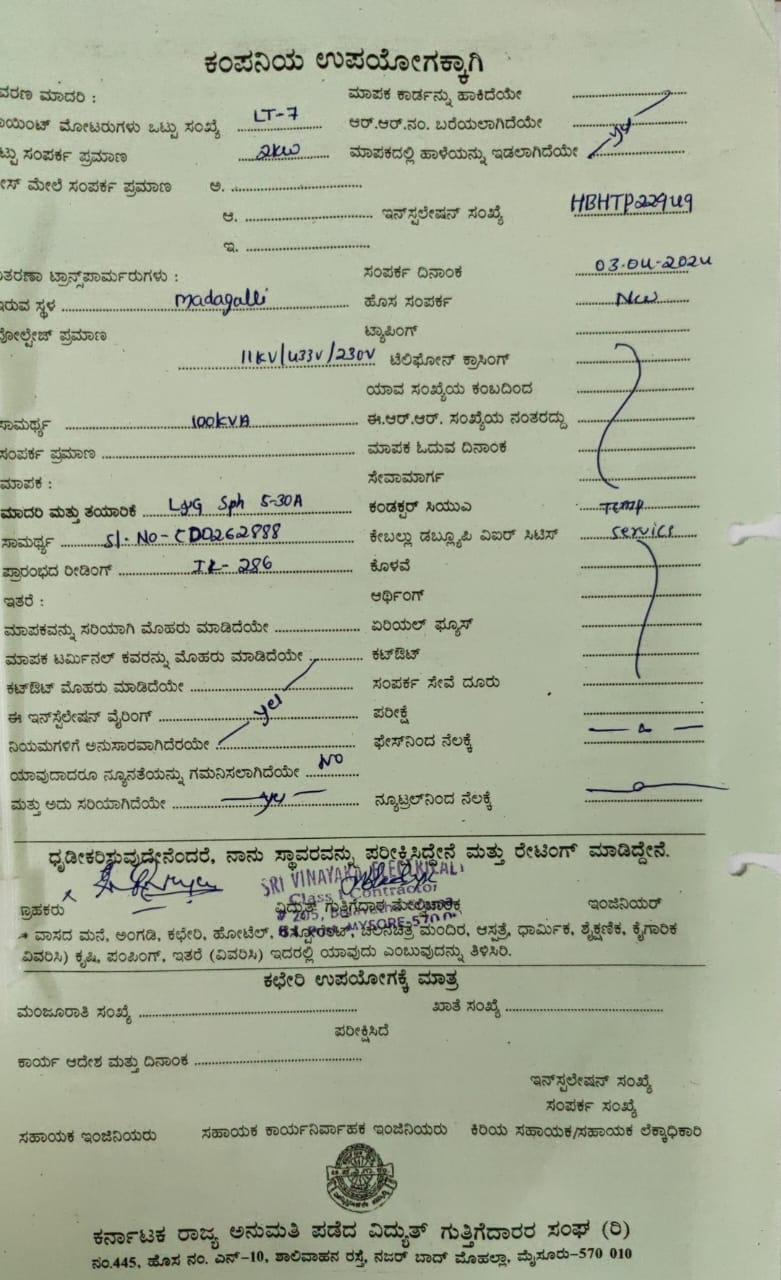 ಕಂಪನಿಯ ಉಪಯೋಗಕ್ಕಾಗಿ
ವರಣ ಮಾದರಿ : ಮಾಪಕ ಕಾರ್ಡನ್ನು ಹಾಕಿದೆಯೇ
ಾಯಿಂಟ್ ಮೋಟರುಗಳು ಒಟ್ಟು ಸಂಖ್ಯೆ LT-7 ಆರ್.ಆರ್.ನಂ. ಬರೆಯಲಾಗಿದೆಯೇ
ಟ್ಟು ಸಂಪರ್ಕ ಪ್ರಮಾಣ 2KW ಮಾಪಕದಲ್ಲಿ ಹಾಳೆಯನ್ನು ಇಡಲಾಗಿದೆಯೇ yes
ೇಸ್ ಮೇಲೆ ಸಂಪರ್ಕ ಪ್ರಮಾಣ ಅ.
ಆ. ಇನ್‌ಸ್ಪಲೇಷನ್ ಸಂಖ್ಯೆ HBHTP22949
ಇ.
ಿತರಣಾ ಟ್ರಾನ್ಸ್‌ಪಾರ್ಮರುಗಳು : ಸಂಪರ್ಕ ದಿನಾಂಕ 03.04.2024
ಇರುವ ಸ್ಥಳ Madagalli ಹೊಸ ಸಂಪರ್ಕ New
ವೋಲ್ಟೇಜ್ ಪ್ರಮಾಣ ಟ್ಯಾಪಿಂಗ್
11KV/433V/230V ಟೆಲಿಫೋನ್ ಕ್ರಾಸಿಂಗ್
ಯಾವ ಸಂಖ್ಯೆಯ ಕಂಬದಿಂದ
ಸಾಮರ್ಥ್ಯ 100KVA ಈ.ಆರ್.ಆರ್. ಸಂಖ್ಯೆಯ ನಂತರದ್ದು
ಸಂಪರ್ಕ ಪ್ರಮಾಣ ಮಾಪಕ ಓದುವ ದಿನಾಂಕ
ಮಾಪಕ : ಸೇವಾಮಾರ್ಗ
ಮಾದರಿ ಮತ್ತು ತಯಾರಿಕೆ L&G Sph 5-30A ಕಂಡಕ್ಟರ್ ಸಿಯುಎ Temp
ಸಾಮರ್ಥ್ಯ Sl. No-CD0262888 ಕೇಬಲ್ಲು ಡಬ್ಲ್ಯೂಪಿ ವಿಐರ್ ಸಿಟಿಸ್ Service
ಪ್ರಾರಂಭದ ರೀಡಿಂಗ್ IR- 286 ಕೊಳವೆ
ಇತರೆ : ಆರ್ಥಿಂಗ್
ಮಾಪಕವನ್ನು ಸರಿಯಾಗಿ ಮೊಹರು ಮಾಡಿದೆಯೇ ಏರಿಯಲ್ ಫ್ಯೂಸ್
ಮಾಪಕ ಟರ್ಮಿನಲ್ ಕವರನ್ನು ಮೊಹರು ಮಾಡಿದೆಯೇ ಕಟ್‌ಔಟ್
ಕಟ್‌ಔಟ್ ಮೊಹರು ಮಾಡಿದೆಯೇ ಸಂಪರ್ಕ ಸೇವೆ ದೂರು
ಈ ಇನ್‌ಸ್ಟಲೇಷನ್ ವೈರಿಂಗ್ yes ಪರೀಕ್ಷೆ
ನಿಯಮಗಳಿಗೆ ಅನುಸಾರವಾಗಿದೆರಯೇ ಫೇಸ್‌ನಿಂದ ನೆಲಕ್ಕೆ
ಯಾವುದಾದರೂ ನ್ಯೂನತೆಯನ್ನು ಗಮನಿಸಲಾಗಿದೆಯೇ NO
ಮತ್ತು ಅದು ಸರಿಯಾಗಿದೆಯೇ yes ನ್ಯೂಟ್ರಲ್‌ನಿಂದ ನೆಲಕ್ಕೆ
ಧೃಡೀಕರಿಸುವುದೇನೆಂದರೆ, ನಾನು ಸ್ಥಾವರವನ್ನು ಪರೀಕ್ಷಿಸಿದ್ದೇನೆ ಮತ್ತು ರೇಟಿಂಗ್ ಮಾಡಿದ್ದೇನೆ.
SRI VINAYAKA ELECTRICALS
Class I Contractor
ಗ್ರಾಹಕರು ವಿದ್ಯುತ್ ಗುತ್ತಿಗೆದಾರ ಮೇಲಿಚಾರಿಕ ಇಂಜಿನಿಯರ್
# 205,
MYSORE-570
* ವಾಸದ ಮನೆ, ಅಂಗಡಿ, ಕಛೇರಿ, ಹೋಟೆಲ್, ಚಲನಚಿತ್ರ ಮಂದಿರ, ಆಸ್ಪತ್ರೆ, ಧಾರ್ಮಿಕ, ಶೈಕ್ಷಣಿಕ, ಕೈಗಾರಿಕ
ವಿವರಿಸಿ) ಕೃಷಿ, ಪಂಪಿಂಗ್, ಇತರೆ (ವಿವರಿಸಿ) ಇದರಲ್ಲಿ ಯಾವುದು ಎಂಬುವುದನ್ನು ತಿಳಿಸಿರಿ.
ಕಛೇರಿ ಉಪಯೋಗಕ್ಕೆ ಮಾತ್ರ
ಮಂಜೂರಾತಿ ಸಂಖ್ಯೆ ಖಾತೆ ಸಂಖ್ಯೆ
ಪರೀಕ್ಷಿಸಿದೆ
ಕಾರ್ಯ ಆದೇಶ ಮತ್ತು ದಿನಾಂಕ
ಇನ್‌ಸ್ಪಲೇಷನ್ ಸಂಖ್ಯೆ
ಸಂಪರ್ಕ ಸಂಖ್ಯೆ
ಸಹಾಯಕ ಇಂಜಿನಿಯರು ಸಹಾಯಕ ಕಾರ್ಯನಿರ್ವಾಹಕ ಇಂಜಿನಿಯರು ಕಿರಿಯ ಸಹಾಯಕ/ಸಹಾಯಕ ಲೆಕ್ಕಾಧಿಕಾರಿ
ಕರ್ನಾಟಕ ರಾಜ್ಯ ಅನುಮತಿ ಪಡೆದ ವಿದ್ಯುತ್ ಗುತ್ತಿಗೆದಾರರ ಸಂಘ (ರಿ)
ನಂ.445, ಹೊಸ ನಂ. ಎನ್-10, ಶಾಲಿವಾಹನ ರಸ್ತೆ, ನಜರ್ ಬಾದ್ ಮೊಹಲ್ಲಾ, ಮೈಸೂರು-570 010